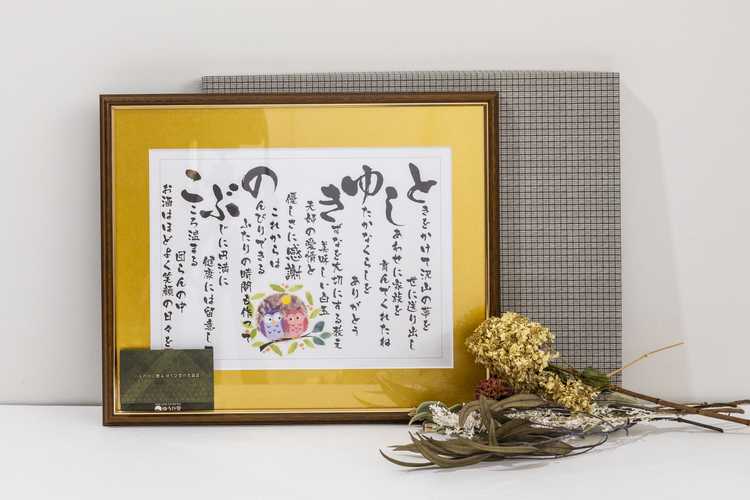 ときをかけて沢山の夢を
せに送り出し
しあわせに家族を
育んでくれたね
ゆたかなくらしを
ありがとう
きずなを大切にする教え
美味しい白玉
夫婦の愛情と
優しさに感謝
これからは
のんびりできる
ふたりの時間も
ぶじに円満に
健康には留意し
こころ温まる
団らんの中
お酒はほどよく笑顔の日々を